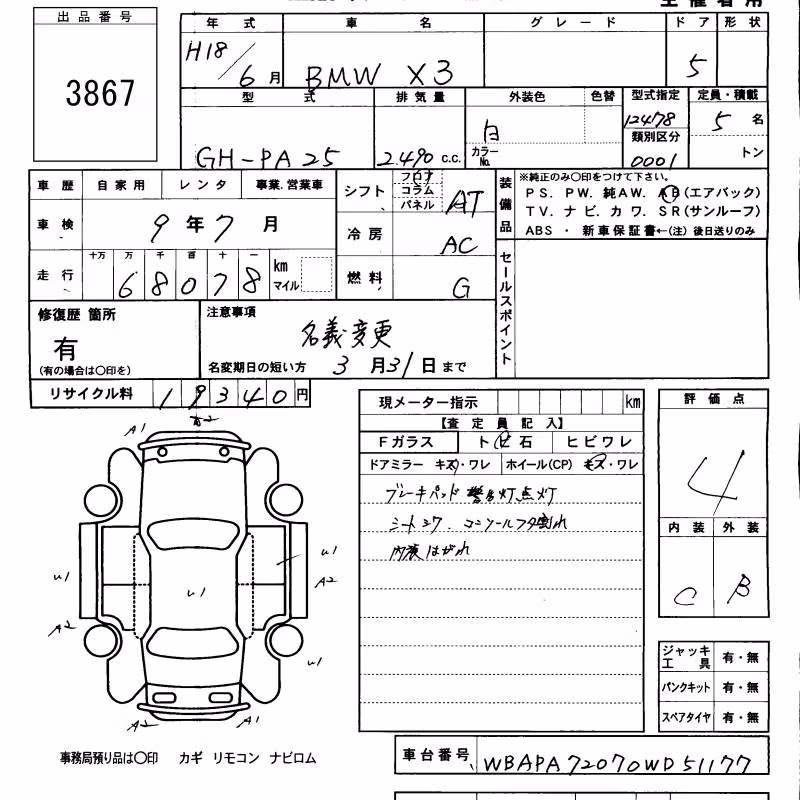 出品番号
3867
年式 車名 グレード ドア 形状
H18/6月 BMW X3 5
型式 排気量 外装色 色替 型式指定 定員・積載
GH-PA25 2490 c.c. 白 カラーNo. 12478 5名
類別区分
0001 トン
車歴 自家用 レンタ 事業.営業車
シフト フロア コラム パネル AT
装備品 ※純正のみ○印をつけて下さい。
PS. PW. 純AW. AB(エアバック)
TV. ナビ. カワ. SR(サンルーフ)
ABS ・ 新車保証書←(注) 後日送りのみ
車検 9年7月
冷房 AC
走行 十万 万 千 百 十 一 km マイル
68078
燃料 G
セールスポイント
修復歴 箇所
有
(有の場合は○印を)
注意事項
名義変更
名変期日の短い方 3月31日まで
リサイクル料 19340円
現メーター指示 km
【査定員記入】
Fガラス トビ石 ヒビワレ
ドアミラー キズ・ワレ ホイール(CP) キズ・ワレ
ブレーキパッド警告灯点灯
シートスワ. コンソールフタ割れ
内張はがれ
評価点
4
内装 外装
C B
A1 A2
u1 u1
A2
u1
A2
u1
A2 A1
ジャッキ工具 有・無
パンクキット 有・無
スペアタイヤ 有・無
事務局預り品は○印 カギ リモコン ナビロム
車台番号 WBAPA72070WD51177